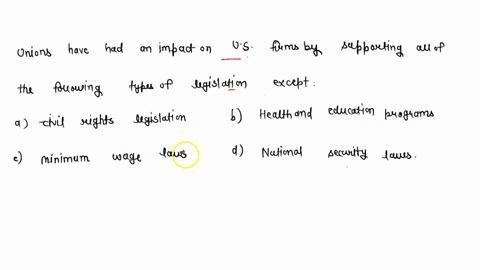 Unions have had an impact on U.S. firms by supporting all of
the following types of legislation except:
a) civil rights legislation b) Health and education programs
c) minimum wage laws d) National security laws.